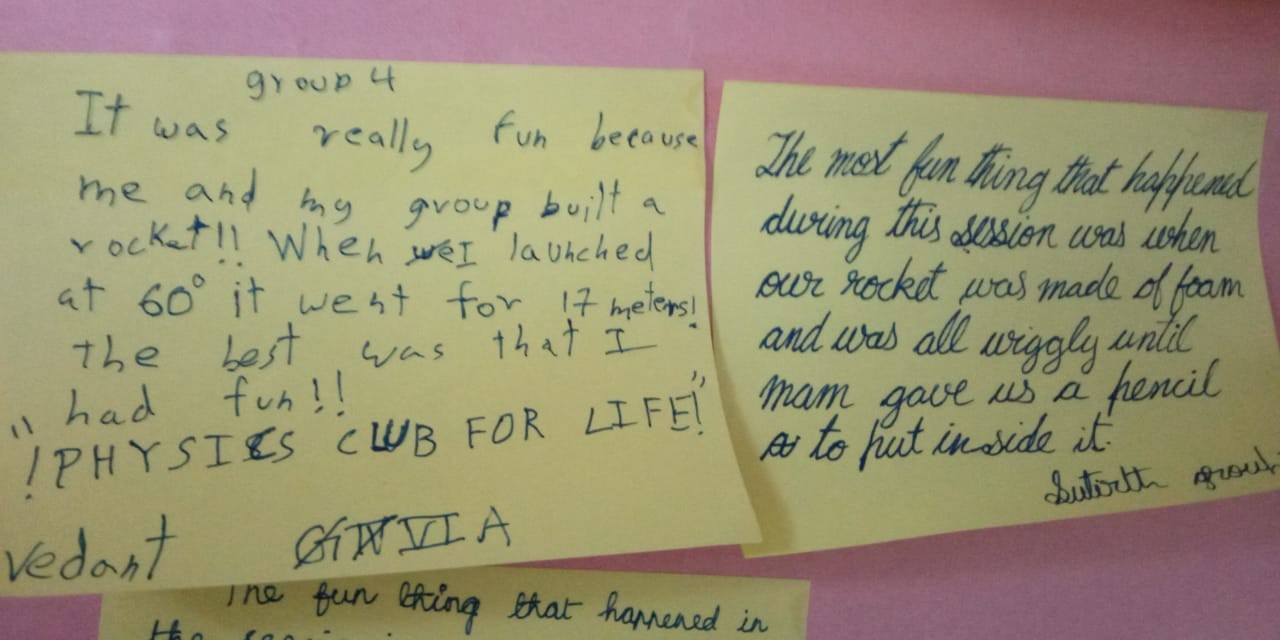 group 4
It was really fun because
me and my group built a
rocket!! When I launched
at 60° it went for 17 meters!
the best was that I
had fun!!
"!PHYSICS CLUB FOR LIFE!"
vedant VI A
The most fun thing that happened
during this session was when
our rocket was made of foam
and was all wiggly until
mam gave us a pencil
to put inside it.
The fun thing that happened in
the